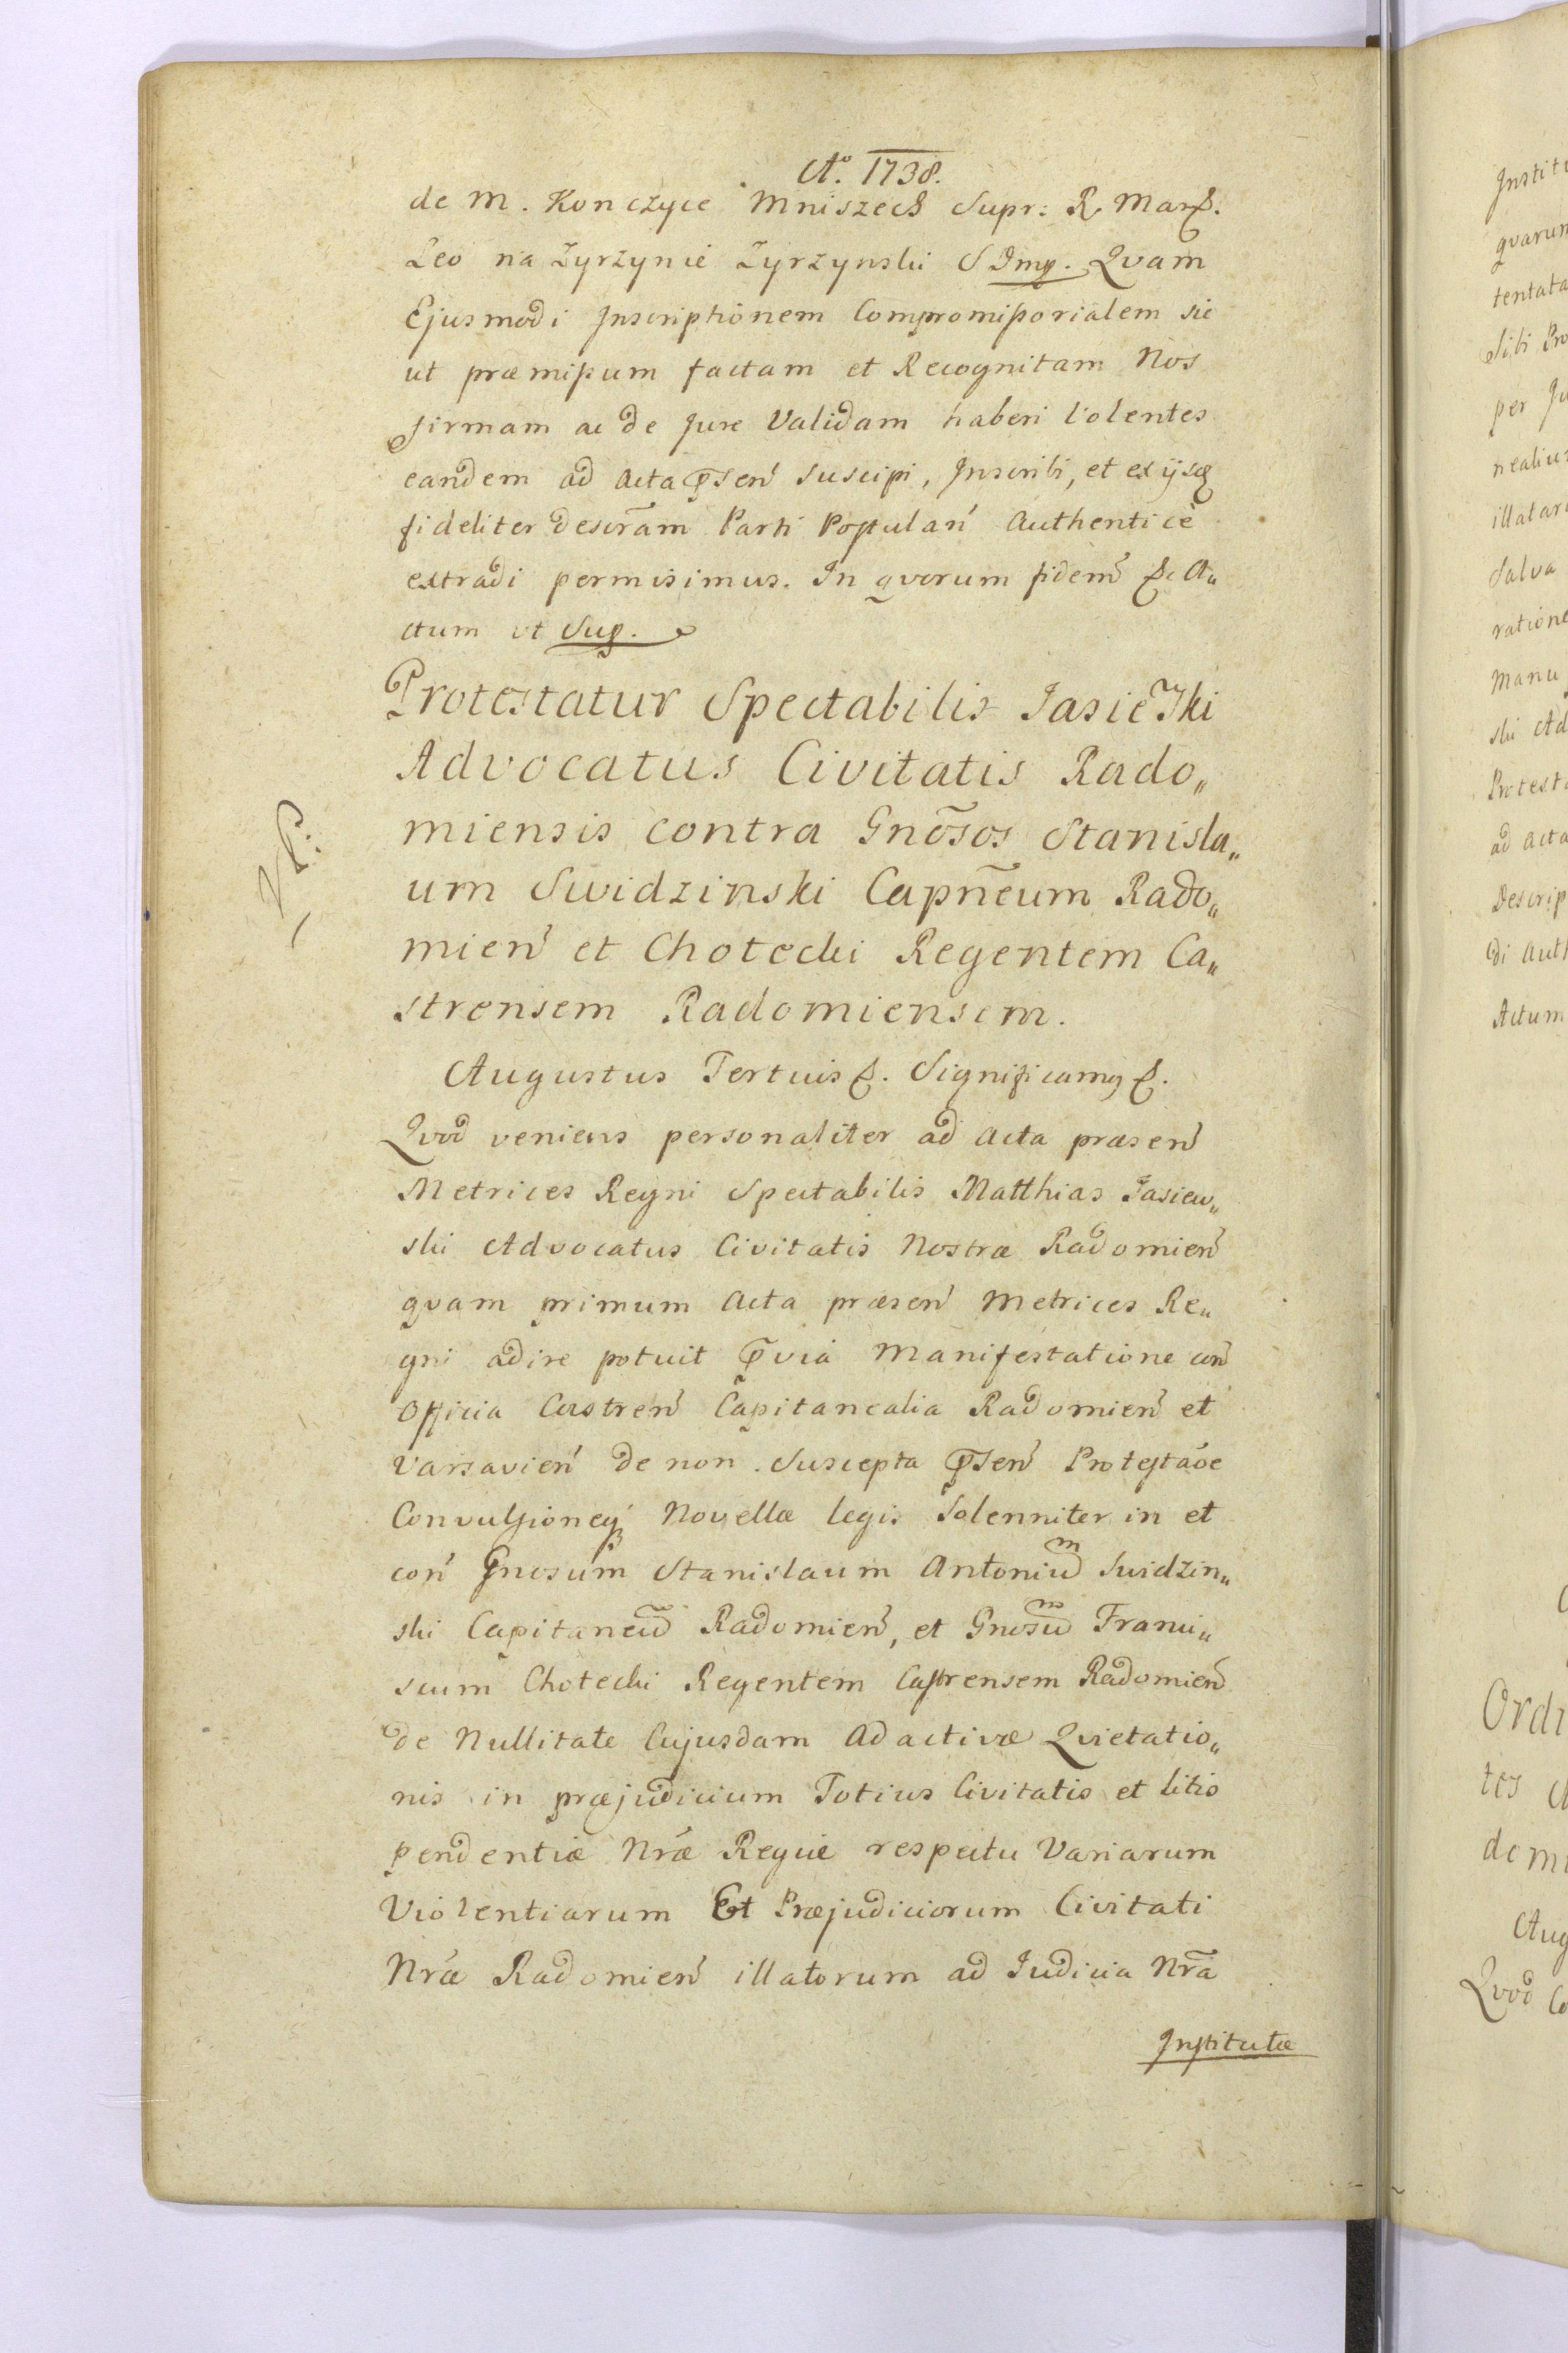 Aº. 1738.
de M. Konczyce Mniszech Supr: R. Mar &.
Leo na Zyrzynie Zyrzynski S Img. Qvam
Ejusmodi Inscriptionem Compromissorialem sic
ut præmissum factam et Recognitam Nos
firmam ac de Jure Validam haberi Volentes
eandem ad Acta pñsen̄ suscipi, Inscribi, et ex ijsq
fideliter descr̄am Parti Postulan̄ Authenticè
extradi permisimus. In qvorum fidem &c A„
ctum ut Sup.
Protestatur Spectabilis Jasieñski
Advocatus Civitatis Rado„
miensis contra Gnõsos Stanisla„
um Swidzinski Capñeum Rado„
mien̄ et Chotecki Regentem Ca„
strensem Radomiensem.
NB:
Augustus Tertuis &. Significamq &.
Qvod veniens personaliter ad Acta præsen̄
Metrices Regni Spectabilis Matthias Jasiew„
ski Advocatus Civitatis Nostræ Radomien̄
qvam primum Acta præsen̄ Metrices Re„
gni adire potuit p̄via Manifestatione con̄
Officia Castren̄ Capitanealia Radomien̄ et
Varsavien̄ de non Suscepta p̄sen̄ Protestãoe
Convulsioneq Novellæ legis Solenniter in et
con̄ Gnosum Stanislaum Antonium Swidzin„
ski Capitaneum Radomien̄, et Gnosum Franci„
scum Chotecki Regentem Castrensem Radomien̄
de Nullitate Cujusdam Adactivæ Qvietatio„
nis in præjudicium Totius Civitatis et litis
pendentiæ Nr̃æ Regiæ respectu Variarum
Violentiarum Et Præjudiciorum Civitati
Nr̃æ Radomien̄ illatorum ad Judicia Nr̃a
Institutæ